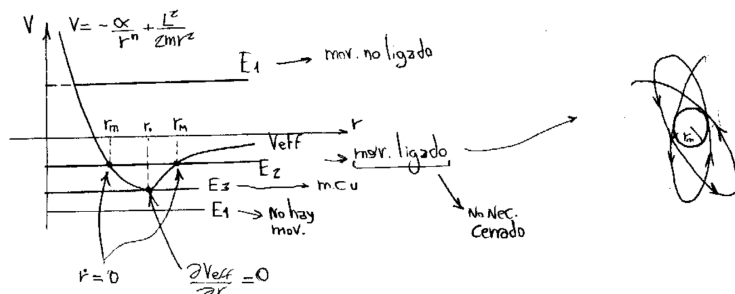 V V = -α/rⁿ + L²/2mr²
E₁ → mov. no ligado
rm r₀ rM r
Veff
E₂ → mov. ligado
rm
E₃ → m.c.u
E₁ → No hay
mov.
No Nec.
Cerrado
ṙ = 0 ∂Veff/∂r = 0